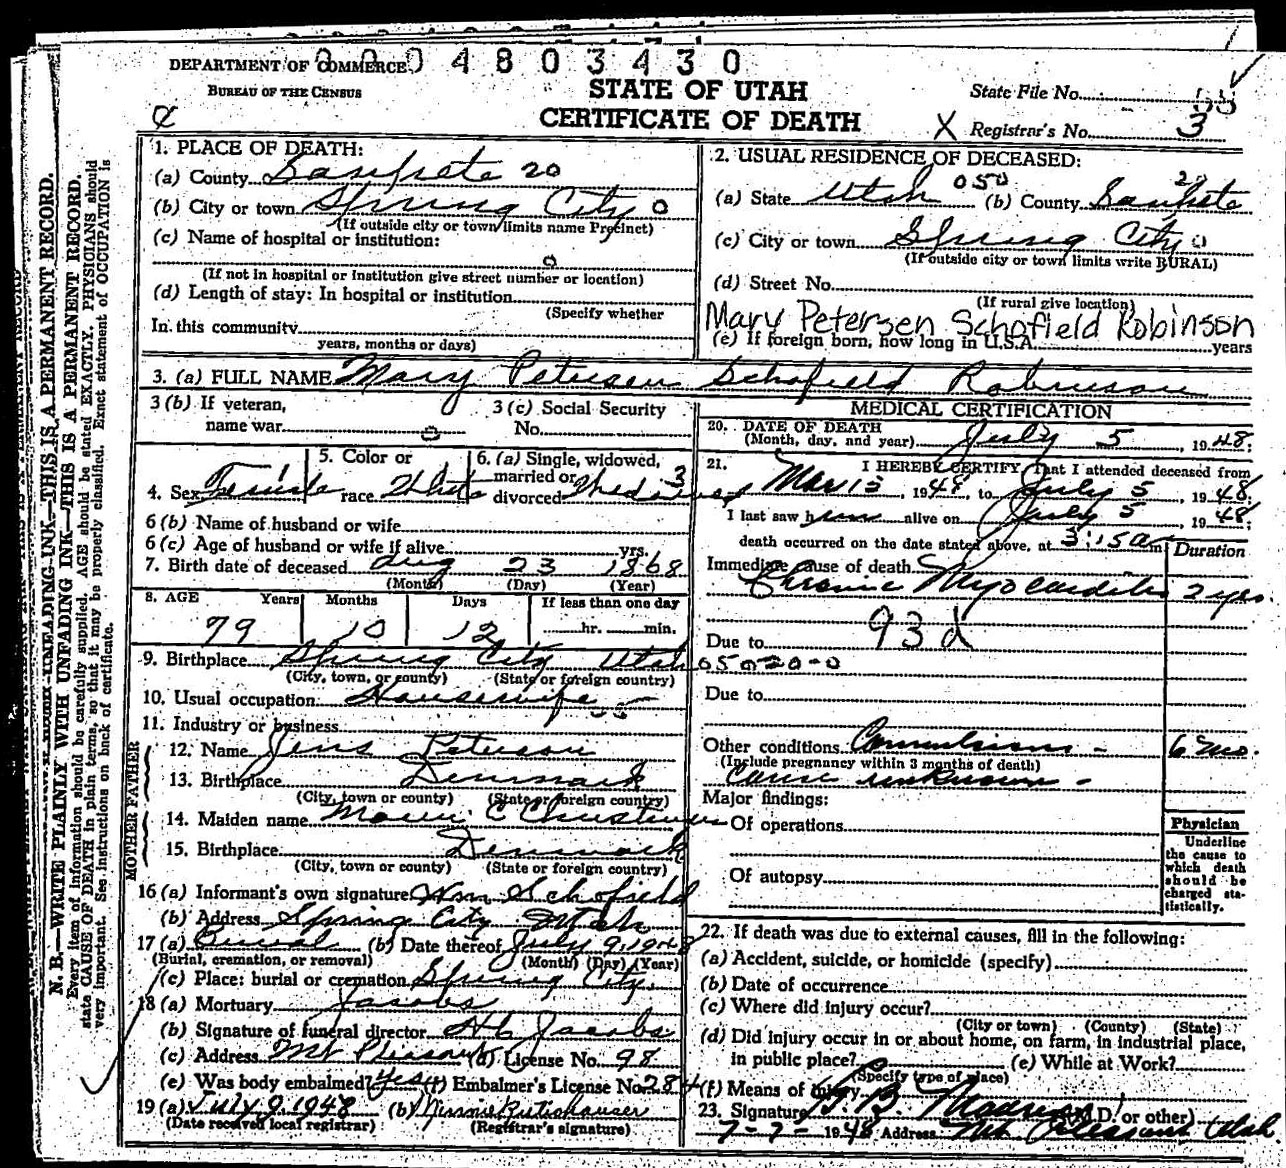 DEPARTMENT OF COMMERCE
BUREAU OF THE CENSUS
004803430
STATE OF UTAH
CERTIFICATE OF DEATH
State File No.
X Registrar's No. 3
1. PLACE OF DEATH:
(a) County Sanpete 20
(b) City or town Spring City 0
(If outside city or town limits name Precinct)
(c) Name of hospital or institution:
0
(If not in hospital or institution give street number or location)
(d) Length of stay: In hospital or institution
(Specify whether
In this community
years, months or days)
2. USUAL RESIDENCE OF DECEASED:
(a) State Utah 050 (b) County Sanpete 20
(c) City or town Spring City 0
(If outside city or town limits write RURAL)
(d) Street No.
(If rural give location)
Mary Petersen Schofield Robinson
(e) If foreign born, how long in U.S.A. years
3. (a) FULL NAME Mary Petersen Schofield Robinson
3 (b) If veteran, name war 0
3 (c) Social Security No.
4. Sex Female
5. Color or race White
6. (a) Single, widowed, married or divorced Widowed 3
6 (b) Name of husband or wife
6 (c) Age of husband or wife if alive yrs.
7. Birth date of deceased Aug 23 1868
(Month) (Day) (Year)
8. AGE Years Months Days If less than one day
79 10 12 hr. min.
9. Birthplace Spring City Utah 05020-0
(City, town, or county) (State or foreign country)
10. Usual occupation Housewife
11. Industry or business
FATHER
12. Name Jens Peterson
13. Birthplace Denmark
(City, town or county) (State or foreign country)
MOTHER
14. Maiden name C
15. Birthplace Denmark
(City, town or county) (State or foreign country)
16 (a) Informant's own signature Wm Schofield
(b) Address Spring City Utah
17 (a) Burial (b) Date thereof July 9, 1948
(Burial, cremation, or removal) (Month) (Day) (Year)
(c) Place: burial or cremation Spring City.
18 (a) Mortuary Jacobs
(b) Signature of funeral director Jacobs
(c) Address Mt Pleasant (d) License No. 98
(e) Was body embalmed? Yes (f) Embalmer's License No. 284
19 (a) July 9, 1948 (b)
(Date received local registrar) (Registrar's signature)
MEDICAL CERTIFICATION
20. DATE OF DEATH
(Month, day, and year) July 5 1948.
21. I HEREBY CERTIFY, That I attended deceased from
Mar 13, 1948, to July 5, 1948.
I last saw alive on July 5, 1948.
death occurred on the date stated above, at 3:15 am Duration
Immediate cause of death
Chronic Myocarditis 2 yrs.
93d
Due to
Due to
Other conditions Convulsions - 6 mo.
(Include pregnancy within 3 months of death)
cause unknown -
Major findings:
Of operations
Of autopsy
Physician
Underline
the cause to
which death
should be
charged sta-
tistically.
22. If death was due to external causes, fill in the following:
(a) Accident, suicide, or homicide (specify)
(b) Date of occurrence
(c) Where did injury occur?
(City or town) (County) (State)
(d) Did injury occur in or about home, on farm, in industrial place,
in public place? (e) While at Work?
(Specify type of place)
(f) Means of Injury
23. Signature (M.D. or other)
1948 Address Mt. Pleasant Utah
N. B.—WRITE PLAINLY WITH UNFADING INK—THIS IS A PERMANENT RECORD.
Every item of information should be carefully supplied. AGE should be stated EXACTLY. PHYSICIANS should
state CAUSE OF DEATH in plain terms, so that it may be properly classified. Exact statement of OCCUPATION is
very important. See instructions on back of certificate.